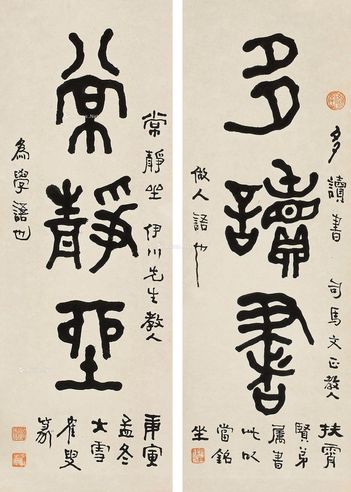 多讀書
多讀書 司馬文正教人
做人語也
扶霄
賢弟
屬書
此以
當銘
坐
常靜坐
常靜坐 伊川先生教人
為學語也
庚寅
孟冬
大雪
叟
篆